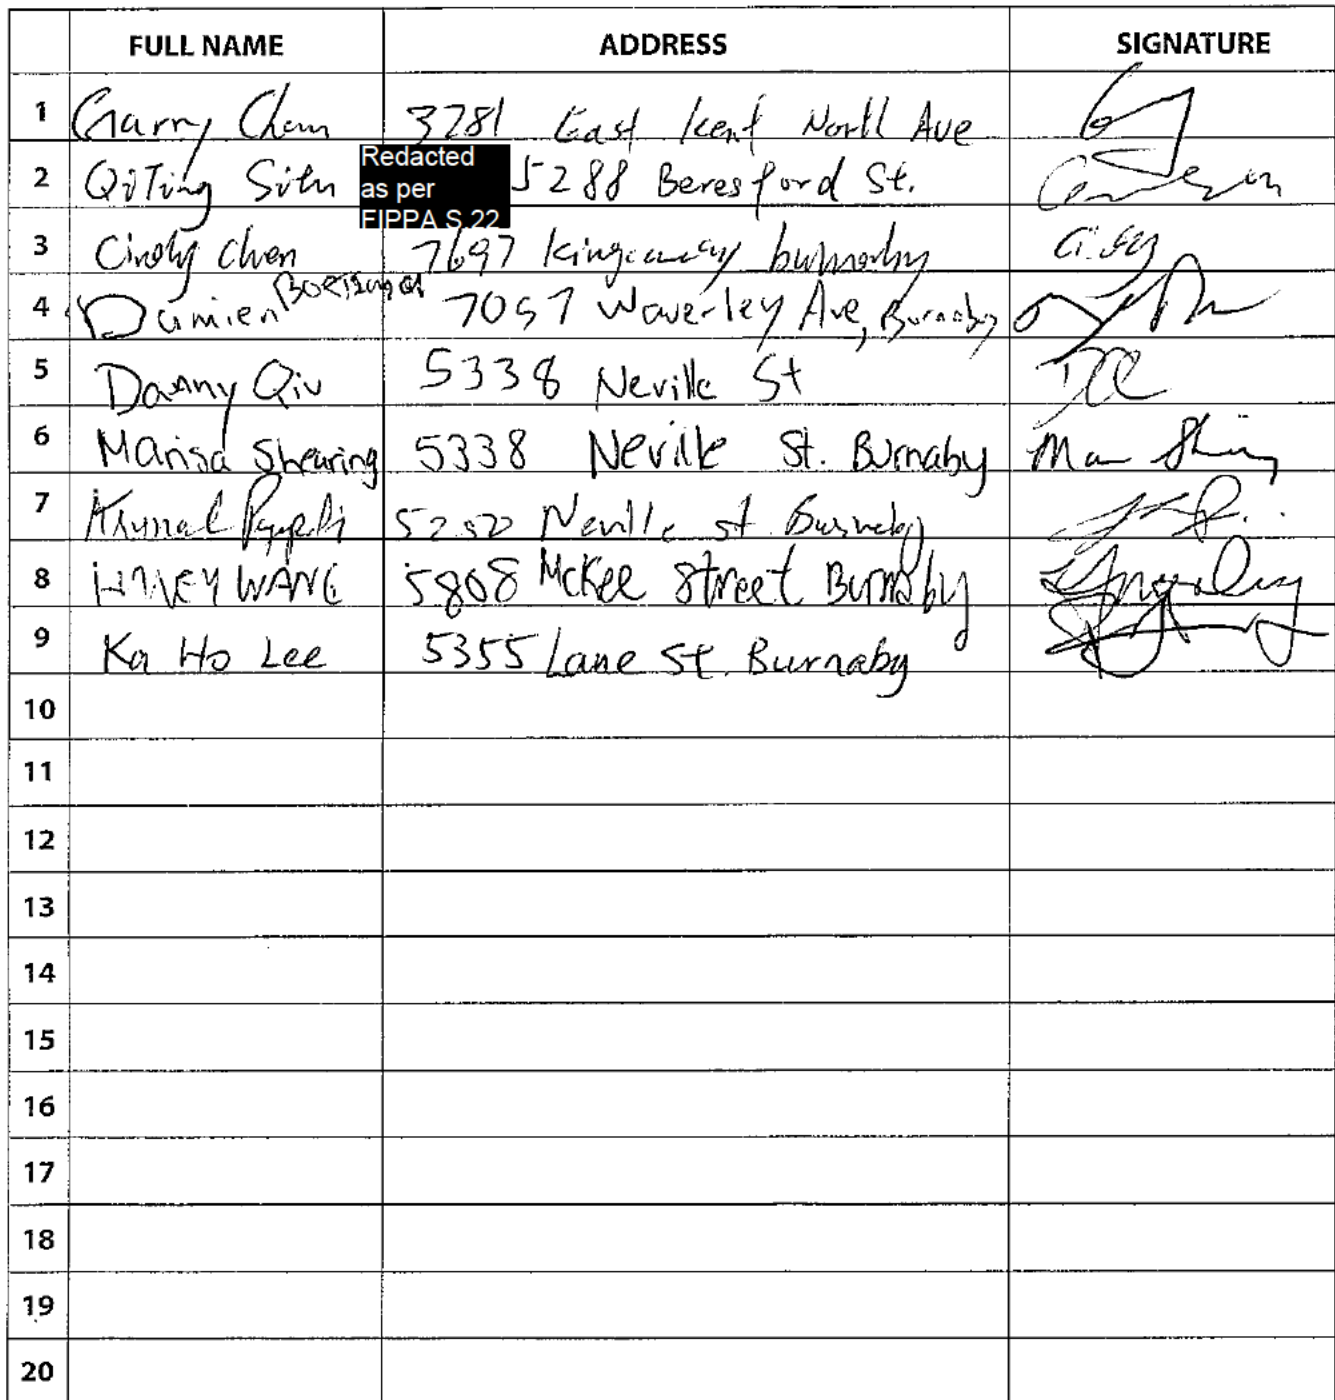 FULL NAME ADDRESS SIGNATURE
1 Garry Chan 3781 East Kent North Ave
2 QiTing Situ Redacted as per FIPPA S.22 5288 Beresford St.
3 Cindy Chen 7697 kingsway burnaby
4 Damien 7057 Waverley Ave, Burnaby
5 Danny Qiu 5338 Neville St
6 Marisa Shearing 5338 Neville St. Burnaby
7 Neville st Burnaby
8 WANG 5808 McKee Street Burnaby
9 Ka Ho Lee 5355 Lane St. Burnaby
10
11
12
13
14
15
16
17
18
19
20